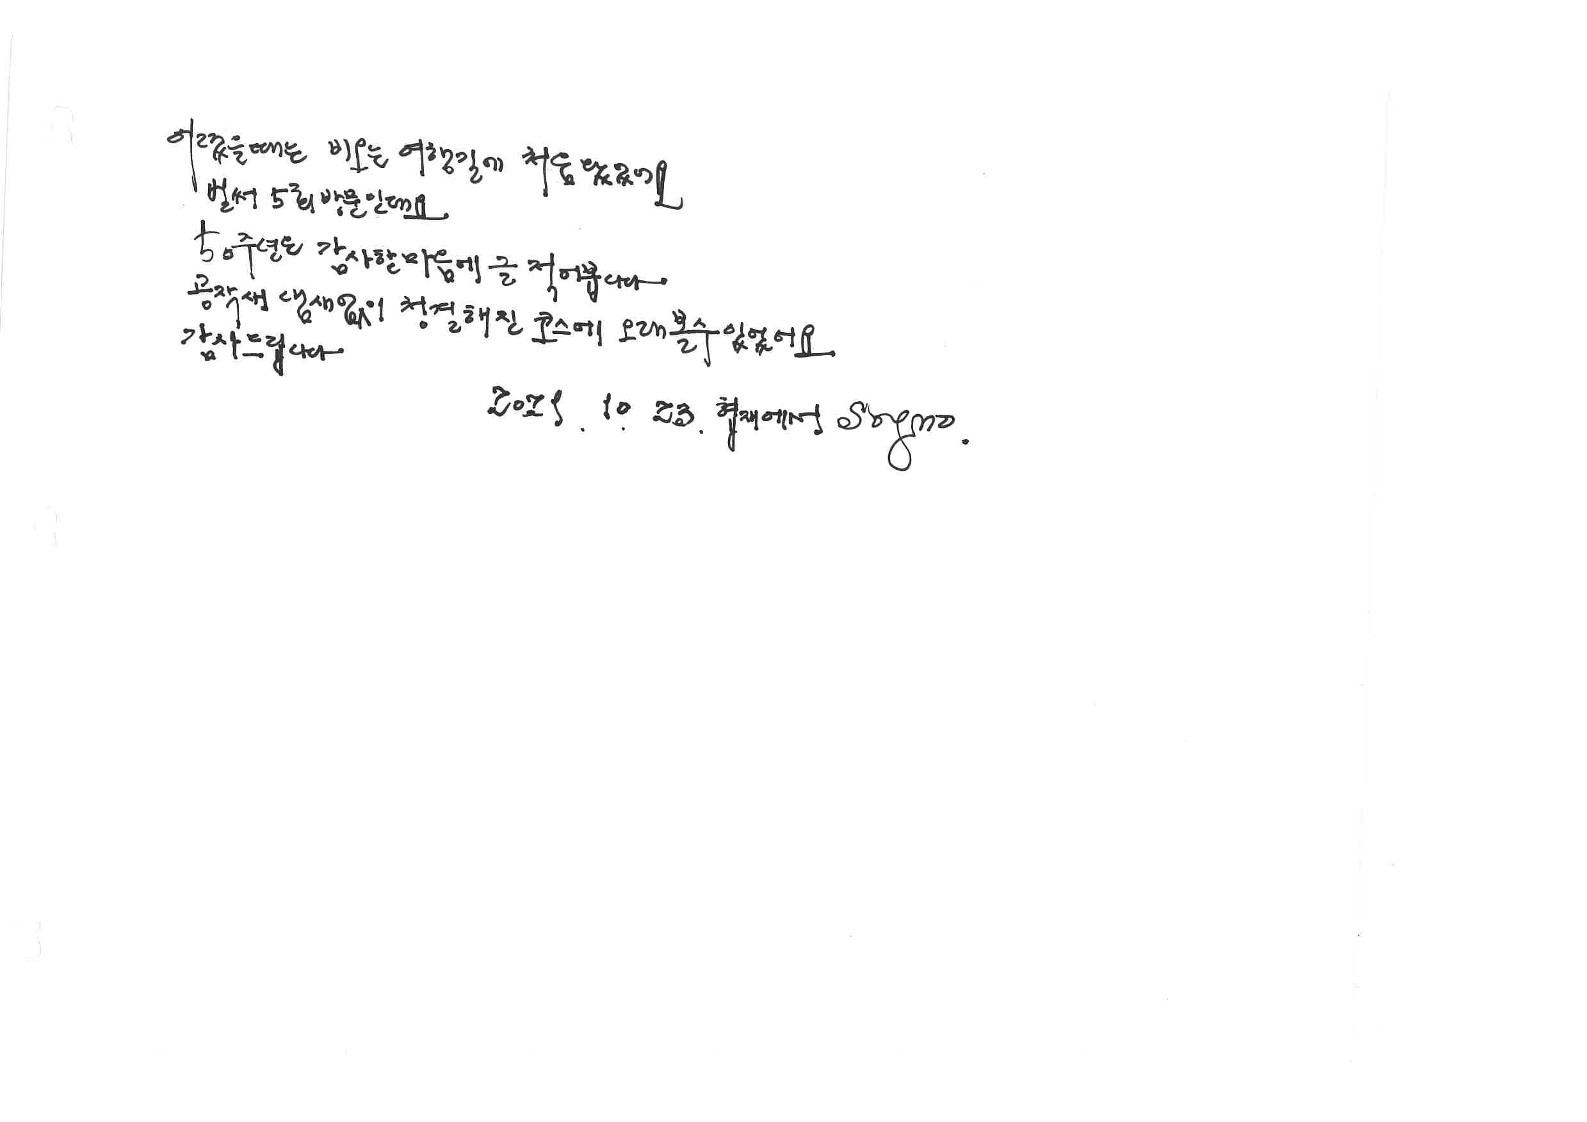 어렸을때는 비오는 여행길에 처음 왔군어요
벌써 5회 방문인데요.
50주년은 감사할 마음에 글 적어봅니다.
공작새 냄새없이 청결해진 코스에 오래볼수 있었어요.
감사드립니다.
10. 23. 협재에서 Sogno.